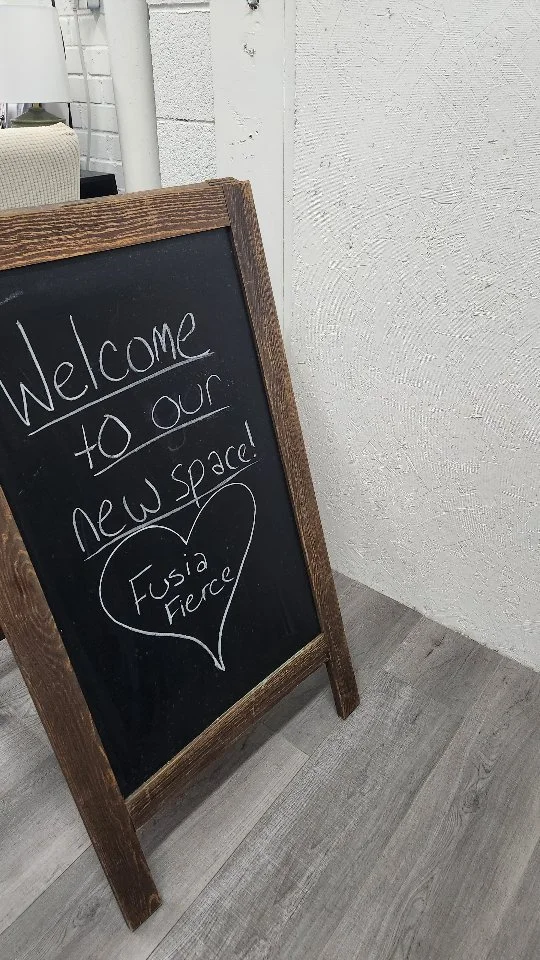 Welcome
to our
new space!
Fusia
Fierce